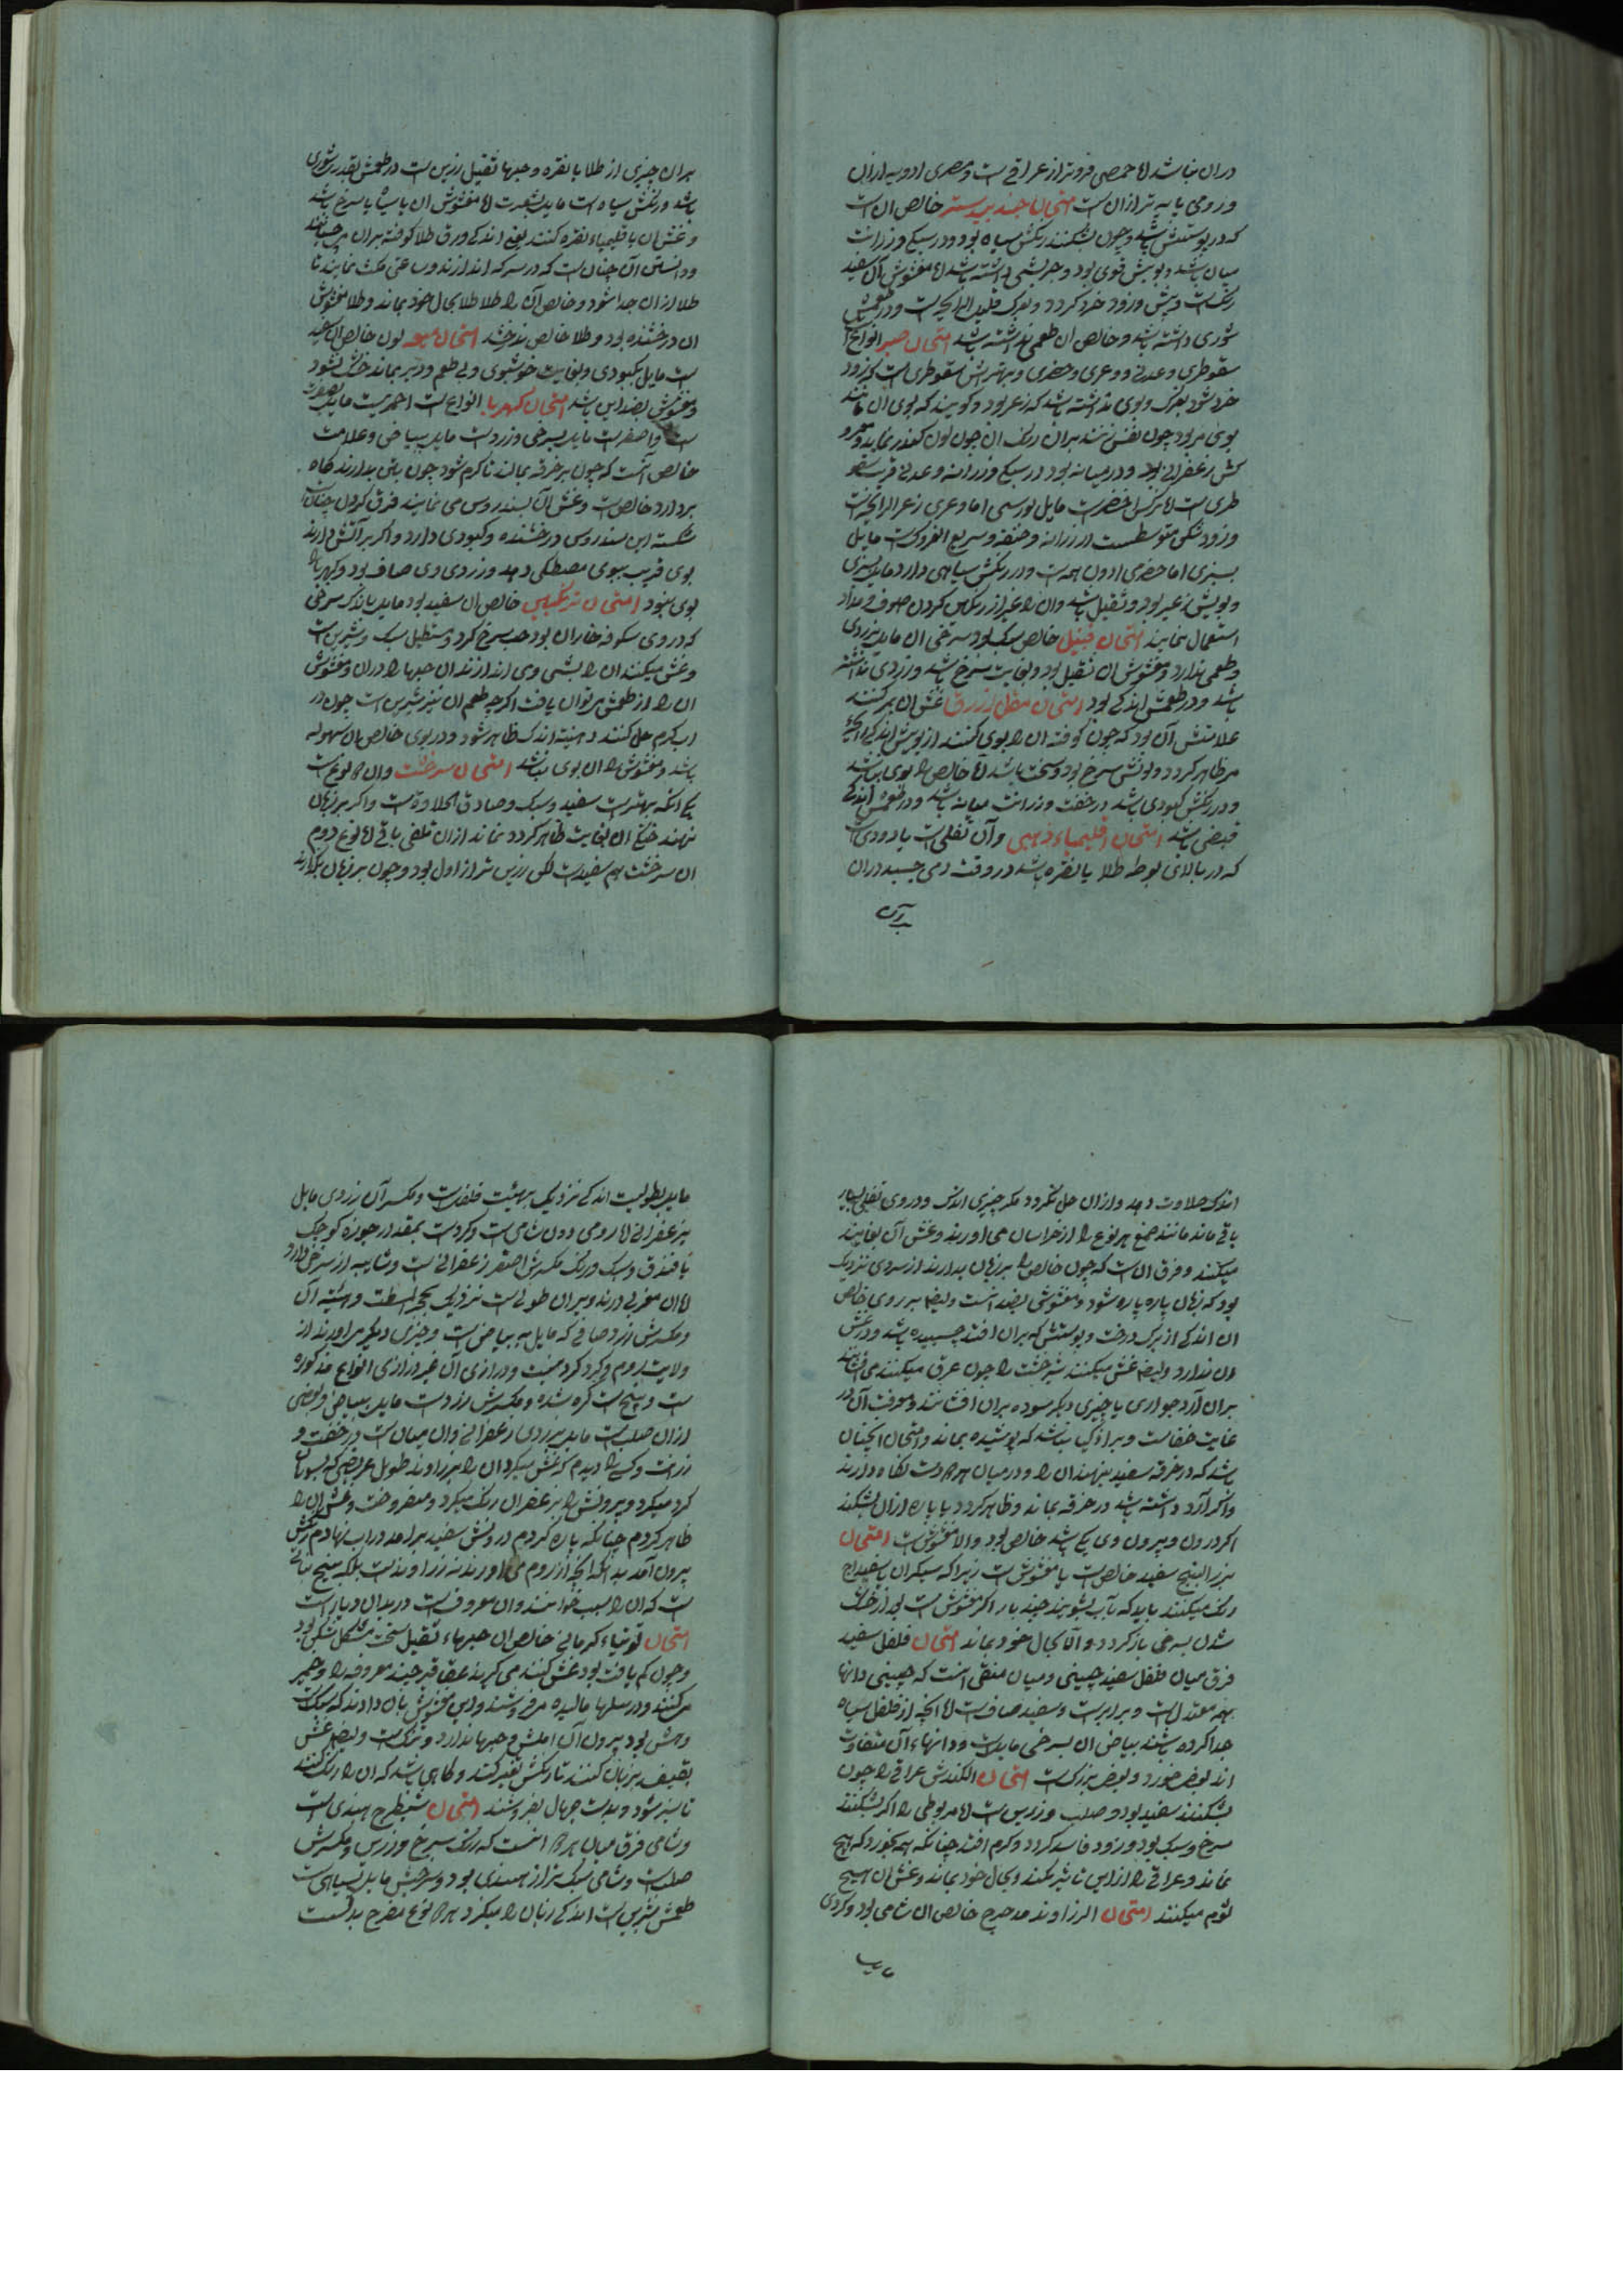 دران نباشد اما حمصی فروتر از عراقی است و مصری ادویه ازان
و رومی پایه تر ازان است امتحان جند بیدستر خالص ان است
که در پوستش باشد و چون بشکنند رنکش سیاه بود و در سبکی و رزانت
میان باشد و بویش قوی بود و چربشی داشته باشد اما مغشوش ان سفید
رنک است و زود خرد کردد و بفرک قلیل الرایحه است و در طعمش
شوری داشته باشد و خالص ان طعمی نداشته باشد امتحان صبر انواع
سقوطری و عدنی و وعری و حضری و بهترینش سقوطری است که زود
خرد شود بفرک و بوی نداشته باشد که زعر بود و کویند که بوی ان مانند
بوی مر بود چون نفس زنند بران رنک ان چون لون کبد نماید و
کش زعفرانی بود و در میانه بود در سبکی و رزانت و عدنی قریب سقو
طری است اما ترکش اخضر است مایل بورسی اما وعری زعر الرایحه است
و زود شکن متوسط است در رزانه و خفته و سریع الفرک است مایل
بسبزی اما حضری ادون همه است و در رنکش سیاهی دارد مایل بسبزی
و بویش زعیر بود و ثقیل باشد وان را غیر از رنکین کردن صوف و مداد
استعمال ننمایند امتحان قنبیل خالص سبک بود و سرخی ان مایل بزردی
و طعمی ندارد و مغشوش ان ثقیل بود و بغایت سرخ باشد و زردی نداشته
باشد و در طعمش اندکی بود امتحان مقل ازرق غش ان بمر کنند
علامتش آن بود که چون کوفته ان را بوی کنند از بویش اندکی رایحه
مر ظاهر کردد و لونش سرخ بود و سخت باشد اما خالص را بوی نباشد
و در رنکش کبودی باشد در خفت و رزانت میانه باشد و در طعمش اندکی
قبضی باشد امتحان اقلیمیاء ذهبی وآن ثفلی است یا دودی است
که در بالای بوطه طلا یا نقره باشد در وقت دمی چسبد دران
بران
بران چیزی از طلا یا نقره و جبها ثقیل رزین است در طعمش بقدر شوری
باشد و رنکش سیاه است مایل بشقرت اما مغشوش ان یا سیاه یا سرخ باشد
و غش ان باقلیمیاء نقره کنند یعنی اندکی ورق طلا کوفته بران می چسبانند
و دانستن آن چنان است که در سرکه اندازند و ساعتی مکث نمایند تا
طلا ازان جدا شود و خالص آن را طلا بحال خود بماند و طلا مغشوش
ان درخشنده بود و طلا خالص ندرخشد امتحان میعه لون خالص ان سفید
است مایل بکبودی و بغایت خوشبوی و بی طعم و دیر بماند خشک نشود
و مغشوش بضد این باشد امتحان کهربا انواع است احمر است مایل بصفرت
است و اصفر است مایل بسرخی و زرد است مایل ببیاض و علامت
خالص آنست که چون بر خرقه بمالند تا کرم شود چون پیش بدارند کاه
بردارد خالص است و غش آن بسندروس می نمایند فرق کردن چنان است
شکسته این سندروس درخشنده و کبودی دارد و اکر بر آتش دارند
بوی قریب ببوی مصطکی دهد و زردی وی صاف بود و کهربا را
بوی نبود امتحان ترنکبین خالص ان سفید بود مایل باندک سرخی
که در وی شکوفه خاران بود حب سرخ کرد و مستطیل سبک و شیرین است
و غش میکنند ان را بشی وی اندازند ان حبها را دران و مغشوش
ان را از طعمش توان یافت اکرچه طعم ان نیز شیرین است چون در
اب کرم حل کنند دهنیته اندک ظاهر شود و در بوی خالص ان سهوله
باشد و مغشوش را ان بوی نباشد امتحان سیر خشت وان دو نوع است
یکی انکه بهتر است سفید و سبک و صادق الحلاوة است و اکر بر زبان
نهند خنکی ان بغایت ظاهر کردد نماند ازان ثفلی باقی اما نوع دوم
ان سرخشت هم سفید است لکن رزین تر از اول بود و چون بر زبان بکذارند
اندک حلاوت دهد و ازان حل نکردد مکر چیزی اندک و در وی ثفلی بسیار
باقی ماند مانند صمغ هر نوع را از خراسان می اورند و غش آن بغایند
میکنند و فرق ان است که چون خالص را بر زبان بدارند از سردی نزدیک
بود که زبان پاره پاره شود و مغشوشی بضد انست و ایضا بر روی خالص
ان اندکی از برک درخت و پوستش که بران افتد چسبیده باشد و در غش
ان ندارد و ایضا غش میکنند شیر خشت را چون عرق میکنند می افشانند
بران آرد جواری یا چیزی دیکر سوده بران افشانند و معرفت آن در
غایت خفاست و براء کیا نباشد که پوشیده بماند و امتحان انچنان
باشد که در خرقه سفید بنهند ان را و در میان هر دو دست نکاه دارند
و اکر آرد داشته باشد در خرقه بماند و ظاهر کردد یا پاره ازان بشکنند
اکر درون و بیرون وی یکی باشد خالص بود و الا مغشوش است امتحان
بزر البنج سفید خالص است یا مغشوش است زیرا که سیکران باسفیداج
رنک میکنند باید که بآب بشویند چند بار اکر مغشوش است بعد از خشک
شدن بسرخی باز کردد والا بحال خود بماند امتحان فلفل سفید
فرق میان فلفل سفید چینی و میان منقی انست که چینی دانها
همه معتدل است و برابر است و سفید صاف است اما انچه از فلفل سیاه
جدا کرده باشند بیاض ان بسرخی مایل است و دانهاء آن متفاوت
اند بعضی خورد و بعضی بزرک است امتحان الکندش عراقی را چون
بشکنند سفید بود و صلب و رزین است اما مربوطی را اکر بشکنند
سرخ و سبک بود و زود فاسد کردد و کرم افتد چنانکه همه بخورد که هیچ
نماند و عراقی را از این تاثیر نکند و بحال خود بماند و غش ان هیچ
لوم میکنند امتحان الزراوند مدحرج خالص ان شامی بود و کردی
مایل
مایل بطولیت اندکی نزدیک بهیئت فلفند است و مکسر آن زردی مایل
بزعفرانی اما رومی دون شامی است و کرد است بمقدار جوزه کوچک
یا فندق و سبک و رنک مکسرش اصفر زعفرانی است و شایبه از سرخی دارد
اما ان مغربی درند و بران طولی است نزدیک بحجر البسط و هیئته آن
و مکسرش زرد صافی که مایل به بیاض است و چیزی دیکر می اورند از
ولایت روم و کرد کرد نیست و درازی آن غیر درازی انواع مذکوره
است و بیخ است کره شده و مکسرش زرد است مایل ببیاض و بعضی
ازان صلب است مایل بزردی زعفرانی وان میان است در خفت و
رزانت و کسی را دیدم که غش میکرد ان را بزراوند طویل عریضی که بسوهان
کرد میکرد و بیرونش را بزعفران رنک میکرد و میفروخت و غش ان را
ظاهر کردم چنانکه پاره کردم درونش سفید برامد در اب نهادم رنکش
بیرون آمد بدانکه انچه از روم می اورند نه زراوند است بلکه بیخ نباتی
است که ان را بسبب خوانند وان معروف است دربدان دیار است
امتحان توتیاء کرمانی خالص ان جبرهاء ثقیل سخت مشکل شکن بود
و چون کم یافت بود غش کنند می کیرند عقاقیر چند معروفه را و خمیر
می کنند و در سلها مالیده می فروشند و این مغشوش بان دادند که سبک است
و هش بود بیرون آن املس و حبها ندارد و تنک است و ایضا غش
بصفیف بر زبان کنند تا رنکش تغیر کند و کاهی باشد که ان را رنک کنند
تا سبز شود و بدست جهال بفروشند امتحان شیطرج هندی است
و شامی فرق میان هر دو انست که رنک سرخ و رزین و مکسرش
صلب است و شامی سبک تر از هندی بود و سرخیش مایل بسیاهی است
طعمش شیرین است اندکی زبان را میکزد هر دو نوع مفرح بد است